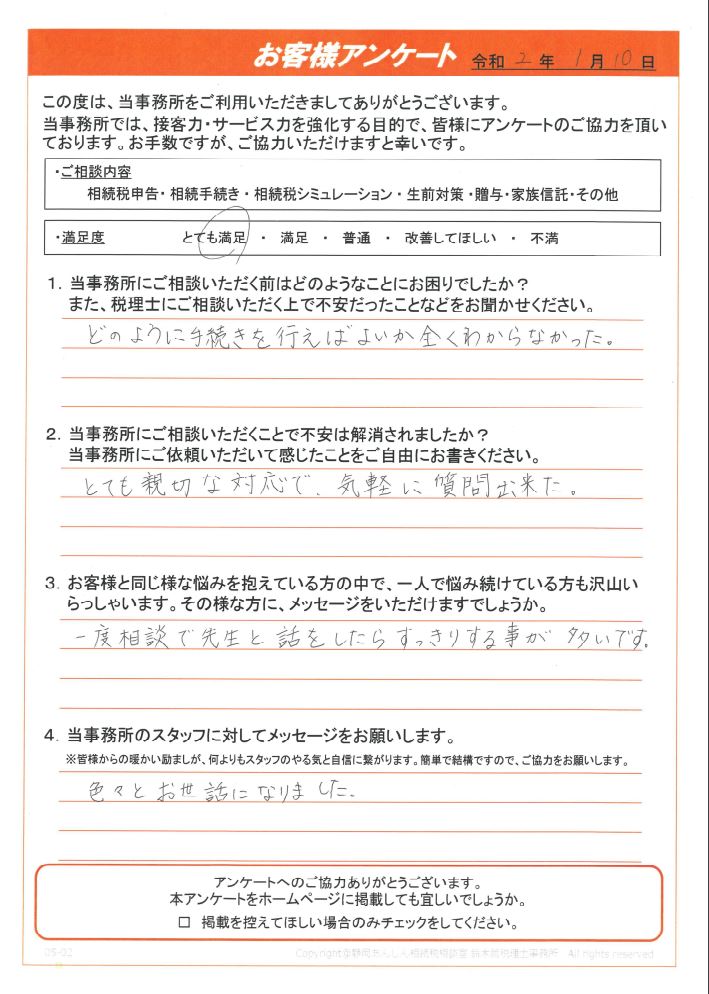 お客様アンケート 令和 2 年 1 月 10 日
この度は、当事務所をご利用いただきましてありがとうございます。
当事務所では、接客力・サービス力を強化する目的で、皆様にアンケートのご協力を頂い
ております。お手数ですが、ご協力いただけますと幸いです。
・ご相談内容
相続税申告・相続手続き・相続税シミュレーション・生前対策・贈与・家族信託・その他
・満足度 とても満足 ・ 満足 ・ 普通 ・ 改善してほしい ・ 不満
1. 当事務所にご相談いただく前はどのようなことにお困りでしたか？
また、税理士にご相談いただく上で不安だったことなどをお聞かせください。
どのように手続きを行えばよいか全くわからなかった。
2. 当事務所にご相談いただくことで不安は解消されましたか？
当事務所にご依頼いただいて感じたことをご自由にお書きください。
とても親切な対応で、気軽に質問出来た。
3. お客様と同じ様な悩みを抱えている方の中で、一人で悩み続けている方も沢山い
らっしゃいます。その様な方に、メッセージをいただけますでしょうか。
一度相談で先生と話をしたらすっきりする事が多いです。
4. 当事務所のスタッフに対してメッセージをお願いします。
※皆様からの暖かい励ましが、何よりもスタッフのやる気と自信に繋がります。簡単で結構ですので、ご協力をお願いします。
色々とお世話になりました。
アンケートへのご協力ありがとうございます。
本アンケートをホームページに掲載しても宜しいでしょうか。
□ 掲載を控えてほしい場合のみチェックをしてください。
05-02 Copyright@静岡あんしん相続税相談室 鈴木 税理士事務所 All rights reserved